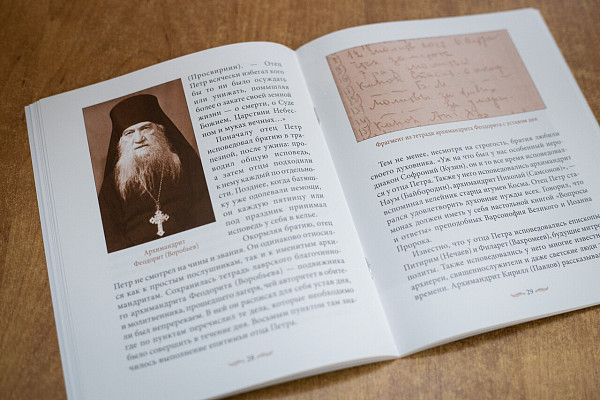 (Просвирнин). — Отец
Петр всячески избегал кого
бы то ни было осуждать
или унижать, помышляя
более о закате своей земной
жизни — о смерти, о Суде
Божием, Царствии Небес-
ном и муках вечных...»
Поначалу отец Петр
исповедовал братию в тра-
пезной, после ужина: про-
водил общую исповедь,
а затем отцы подходили
к нему каждый по отдельно-
сти. Позднее, когда батюш-
ку уже одолевали немощи,
он каждую пятницу или
под праздник принимал
исповедь у себя в келье.
Архимандрит
Феодорит (Воробьев)
Окормляя братию, отец
Петр не смотрел на чины и звания. Он одинаково относил-
ся как к простым послушникам, так и к именитым архи-
мандритам. Сохранилась тетрадь лаврского благочинно-
го архимандрита Феодорита (Воробьева) — подвижника
и молитвенника, прошедшего лагеря, чей авторитет в обите-
ли был непререкаем. В ней он расписал для себя устав дня,
где по пунктам перечислил те дела, которые необходимо
было совершить в течение дня. Восьмым пунктом там зна-
чилось выполнение епитимьи отца Петра.
28
Фрагмент из тетради архимандрита Феодорита с уставом дня
Тем не менее, несмотря на строгость, братия любила
своего духовника. «Уж на что был у нас особенный иеро-
диакон Софроний (Кузин), он и то все время исповедовал-
ся у отца Петра. Также у него исповедались архимандрит
Наум (Байбородин), архимандрит Николай (Самсонов)» —
вспоминал келейник старца игумен Косма. Отец Петр ста-
рался удовлетворить духовные нужды всех. Говорил, что
монах должен иметь у себя настольной книгой «Вопросы
и ответы» преподобных Варсонофия Великого и Иоанна
Пророка.
Известно, что у отца Петра исповедовались епископы
Питирим (Нечаев) и Филарет (Вахромеев), будущие митро-
политы. Также исповедовались у него многие известные
архиереи, священнослужители и даже светские люди
времени. Архимандрит Кирилл (Павлов) рассказывал
29